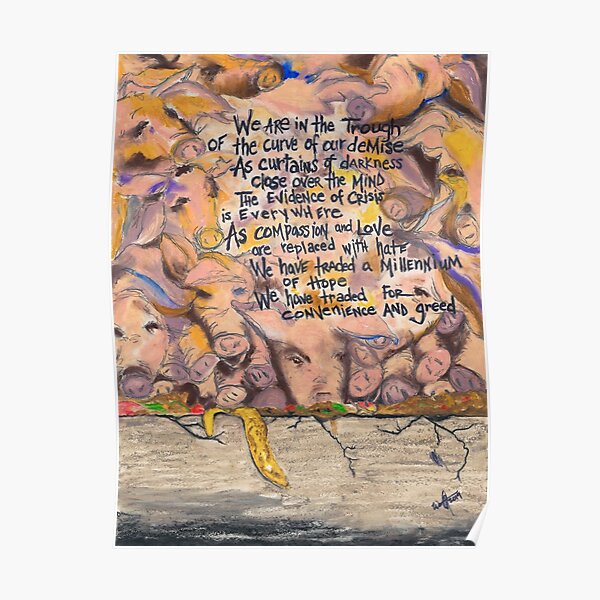 We ARe in the Trough
of the curve of our demise
As curtains of darkness
close over the MIND
The Evidence of Crisis
is EveryWHERE
As compassion and Love
are replaced with hate
We have traded a Millennium
of Hope
We have traded FOR
convenience AND greed